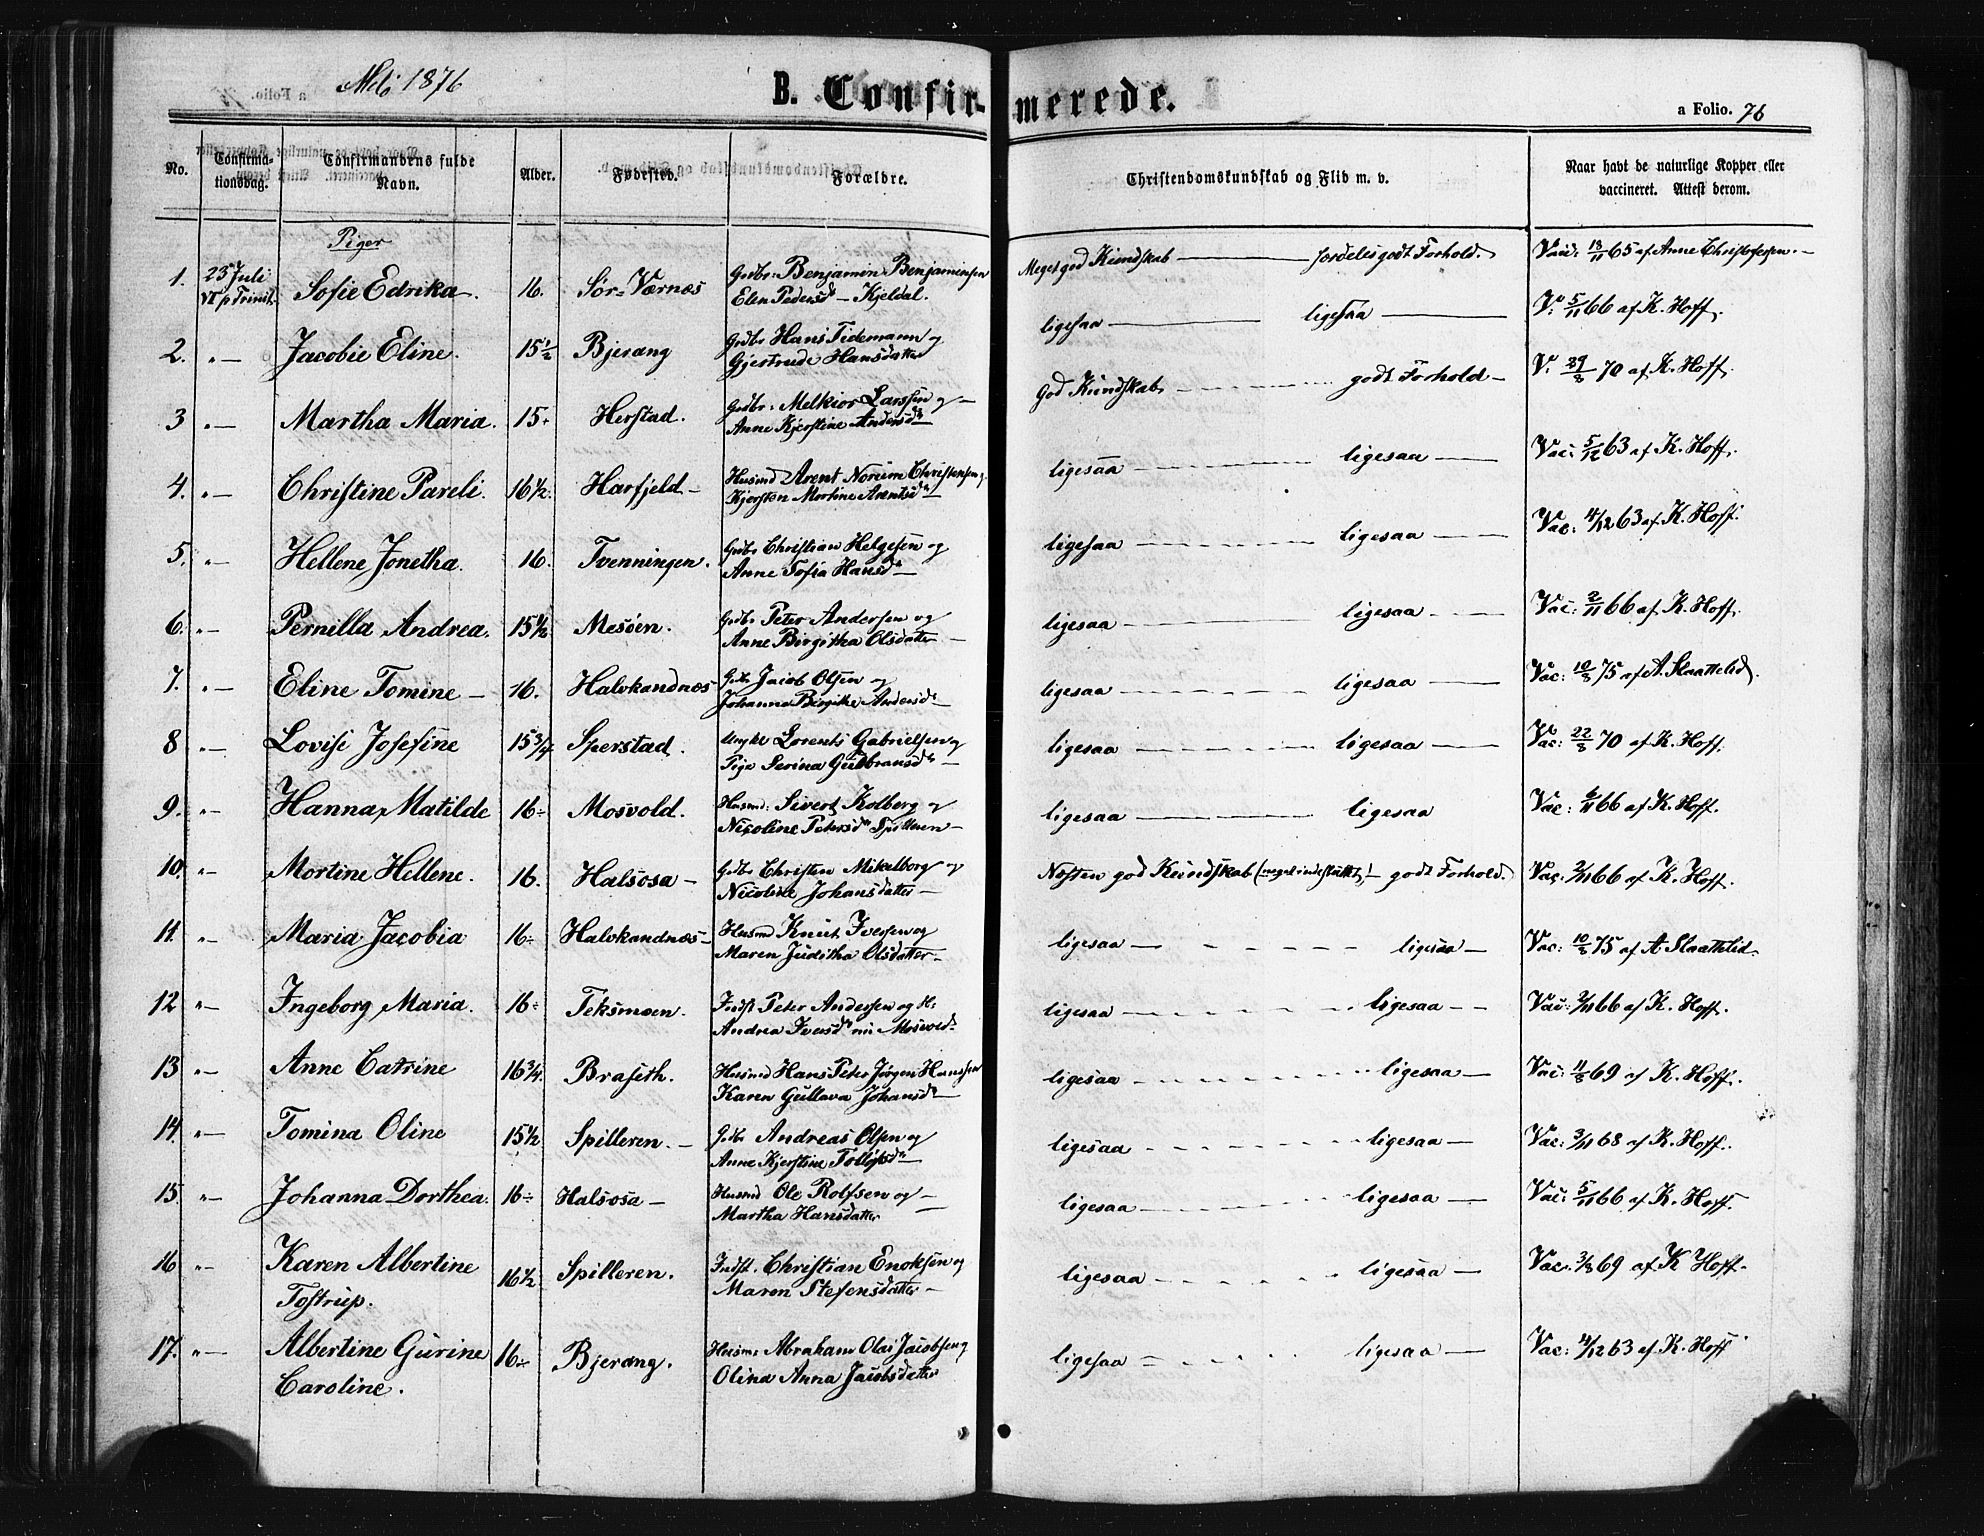 Melö 1876
B. Confir-merede.
a Folio. 76
No.
Confirma-tionsdag.
Confirmandens fulde Navn.
Alder.
Fødested.
Forældre.
Christendomskundskab og Flid m. v.
Naar havt de naturlige Kopper eller vaccineret. Attest derom.
Piger
1. 23 Juli VI p Trinit. Sofie Edrika. 16. Sör-Værnæs Gdbr: Benjamin Benjaminsen Elen Pedersdr Kjeldal. Meget god Kundskab fordeles godt Forhold. Vac: 13/11 65 af Anne Christofersen.
2. "— Jacobie Eline. 15½ Bjerang Gdbr Hans Tidemann og Gjertrude Hansdatter ligesaa ligesaa V: 5/11 66 af K. Hoff.
3 "— Martha Maria. 15 Herstad. Gdbr: Melkior Larssen og Anne Kjerstine Andersdr God Kundskab godt Forhold V. 29/8 70 af K. Hoff.
4. "— Christine Pareli. 16½. Harfjeld Husmd Arent Norum Christensen og Kjersten Martine Arentsdr ligesaa ligesaa Vac: 5/12 63 af K. Hoff.
5. "— Hellene Jonetha. 16. Tvenningen. Gdbr Christian Helgesen og Anne Sofia Hansdr ligesaa ligesaa Vac: 4/12 63 af K. Hoff.
6. "— Pernilla Andrea. 15½ Mesöen. Gdbr Peter Andersen og Anne Birgitha Olsdatter ligesaa ligesaa Vac: 2/11 66 af K. Hoff.
7. "— Eline Tomine 16. Halvkandnæs Gdbr Jacob Olsen og Johanna Birgitte Andersdr ligesaa ligesaa Vac: 10/8 75 af A. Slaattelid.
8 "— Lovise Josefine 15¾ Sperstad. Ungkl Lorents Gabrielsen og Pige Serina Gulbransdr ligesaa ligesaa Vac: 22/8 70 af K. Hoff.
9. "— Hanna Matilde 16 Mosvold. Husmd: Sivert Kolberg og Nicoline Petersdr Spilleren ligesaa ligesaa Vac: 6/11 66 af K. Hoff.
10. "— Mortine Hellene. 16. Halsosa Gdbr Christen Mikelborg og Nicoline Johansdatter Næsten god Kundskab godt Forhold. Vac: 2/11 66 af K. Hoff.
11. "— Maria Jacobia 16 Halvkandnæs Husmd Knut Iversen og Maren Juditha Olsdatter ligesaa ligesaa Vac: 10/8 75 af A. Slaattelid.
12 "— Ingeborg Maria. 16 Teksmoen. Indst Peter Andersen og H: Andrea Iversdr ligesaa ligesaa Vac: 2/11 66 af K. Hoff.
13 "— Anne Catrine 16¾. Braseth. Husmd Hans Peter Jörgen Hanssen Karen Gullava Johansdr ligesaa ligesaa Vac: 11/8 69 af K. Hoff.
14. "— Tomina Oline 15½ Spilleren. Gdbr Andreas Olsen og Anne Kjerstine Tollefsdr ligesaa ligesaa Vac: 3/11 68 af K. Hoff.
15 "— Johanna Dorthea. 16 Halsosa Husmd Ole Rolfsen og Martha Hansdatter ligesaa ligesaa Vac: 5/11 66 af K. Hoff.
16 "— Karen Albertine Tostrup. 16½ Spilleren. Indst. Christian Enoksen og Maren Stefensdatter ligesaa ligesaa Vac. 3/8 69 af K Hoff.
17. "— Albertine Gurine Caroline. 16 Bjerang. Husm: Abraham Olai Jacobsen og Olina Anna Jacobsdatter ligesaa ligesaa Vac: 4/12 63 af K. Hoff